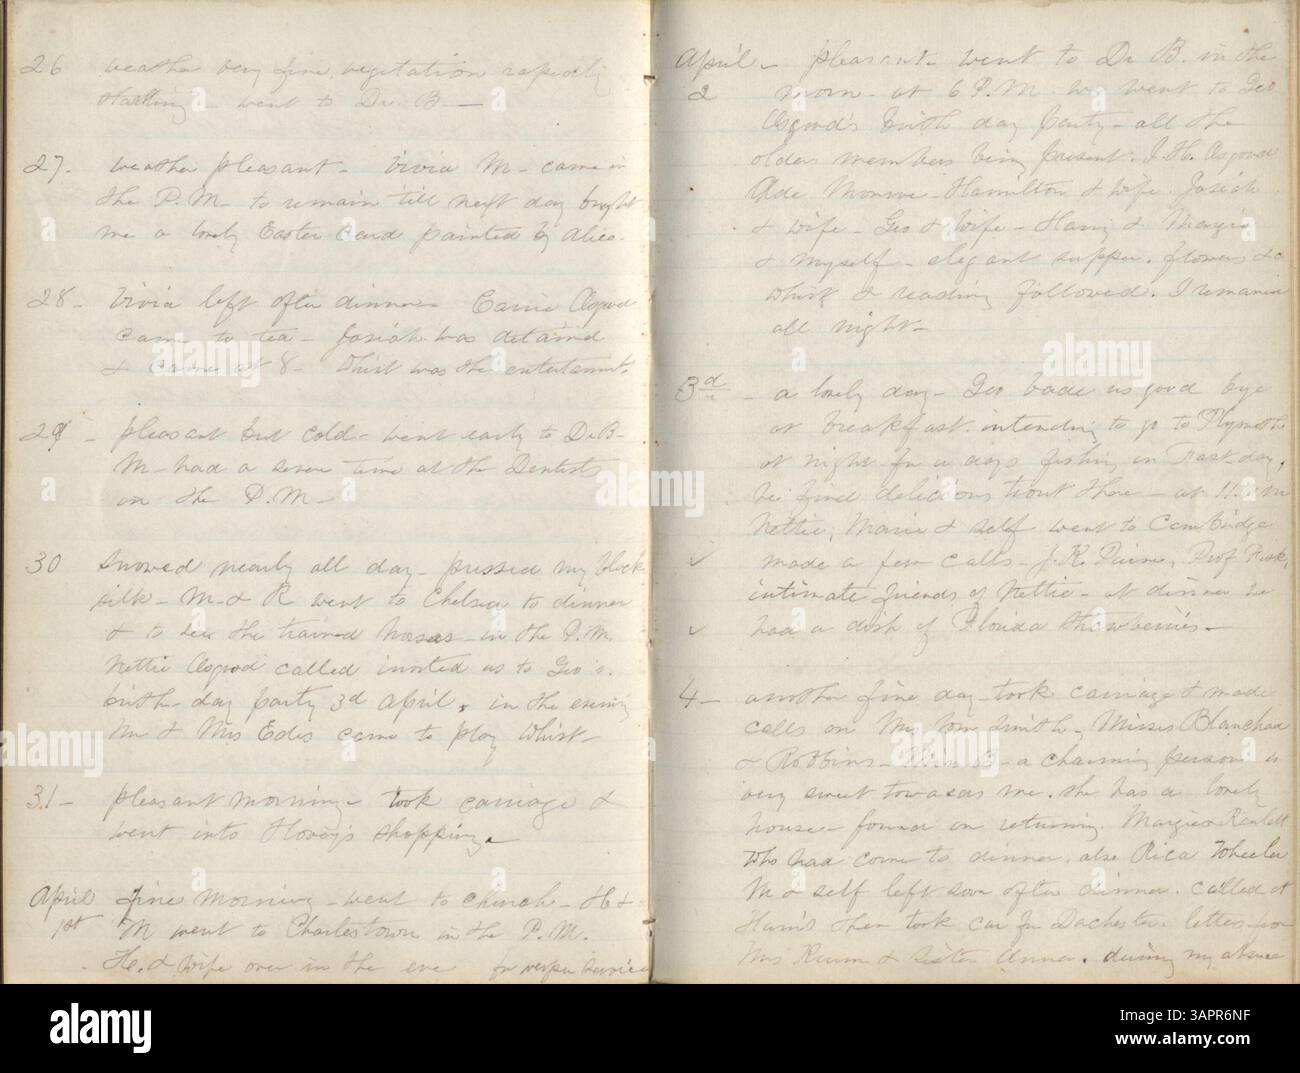 26 weather very fine, vegetation rapidly
starting - went to Dr. B -
27. weather pleasant - Vivia M - came in
the P.M. to remain till next day brght
me a lovely Easter card painted by Alice.
28 - Vivia left after dinner Carrie Osgood
came to tea - Josiah was detained
& came at 8 - Whist was the entertainmt.
29 - pleasant but cold - went early to Dr B -
M - had a severe time at the Dentists
in the P.M -
30 Snowed nearly all day - pressed my black
silk - M. & R went to Chelsea to dinner
& to see the trained horses - in the P.M.
Nettie Osgood called invited us to Geo's.
birth-day party 3d April. in the evening
Mr & Mrs Edes came to play whist -
31 - pleasant morning - took carriage &
went into Hovey's shopping.
April fine morning - went to church - H &
1st M went to Charlestown in the P.M.
H. & wife over in the eve for vesper service
April - pleasant - went to Dr B. in the
2 morn - at 6 P.M. we went to Geo
Osgood's birth day party - all the
older members being present. J. H. Osgood
Monroe - Hamilton & wife. Josiah
& wife - Geo & wife - Harry & Margie
& myself - elegant supper. flowers &c
whist & reading followed. I remained
all night -
3d - a lovely day - Geo bade us good bye
at breakfast. intending to go to Plymouth
at night for a days fishing on Fast day,
he finds delicious trout there - at 11. a m
Nettie, Marie & self went to Cambridge
✓ made a few calls - J. K. Paine, Prof Fisk,
intimate friends of Nettie - at dinner we
✓ had a dish of Florida strawberries -
4 - another fine day took carriage & made
calls on Mrs Tom Smith. Misses Blanchard
& Robbins - B - a charming person is
very sweet towards me. she has a lovely
house - found on returning. Margie Ranlett
who had come to dinner. also Rica Wheeler
M & self left soon after dinner. called at
Ham's then took car for Dorchester. letters from
Mrs & sister Anna. during my absence
alamy
Image ID: 3APR6NF
www.alamy.com